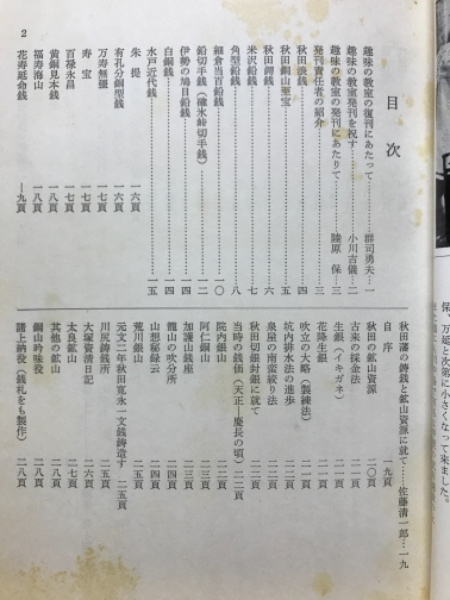 目次
趣味の教室の復刊にあたって……郡司勇夫…一
趣味の教室発刊を祝す……小川吉儀…二
趣味の教室の発刊にあたりて……陸原保…三
発刊責任者の紹介……三
秋田銭……四
秋田銅山至宝……五
秋田鍔銭……六
米沢鉛銭……七
角型鉛銭……八
細倉当百鉛銭……一〇
鉛切手銭(碓氷峠切手銭)……一二
伊勢の鳩目鉛銭……一四
白銅銭……一四
水戸近代銭……一五
朱提 一六頁
有孔分銅型銭 一六頁
万寿無彊 一七頁
寿宝 一七頁
百禄永昌 一七頁
黄銅見本銭 一八頁
福寿海山 一八頁
花寿延命銭 一九頁
2
秋田藩の鋳銭と鉱山資源に就て……佐藤清一郎…一九
自序 一九頁
秋田の鉱山資源 二〇頁
古来の採金法 二一頁
生銀(イキガネ) 二一頁
花降生銀 二一頁
吹立の大略(製練法) 二一頁
坑内排水法の進歩 二一頁
泉屋の南蛮絞り法 二二頁
秋田切銀封銀に就て 二二頁
当時の銭価(天正—慶長の頃) 二二頁
院内銀山 二三頁
阿仁銅山 二三頁
加護山銭座 二三頁
籠山の吹分所 二四頁
山想秘録云 二四頁
荒川銀山 二五頁
元文二年秋田寛永一文銭鋳造す 二五頁
川尻鋳銭所 二五頁
大塚資清日記 二六頁
太良鉱山 二七頁
其他の鉱山 二八頁
銅山吟味役 二八頁
諸上納役(銭札をも製作) 二八頁
保、万延と次第に小さくなって来ました。